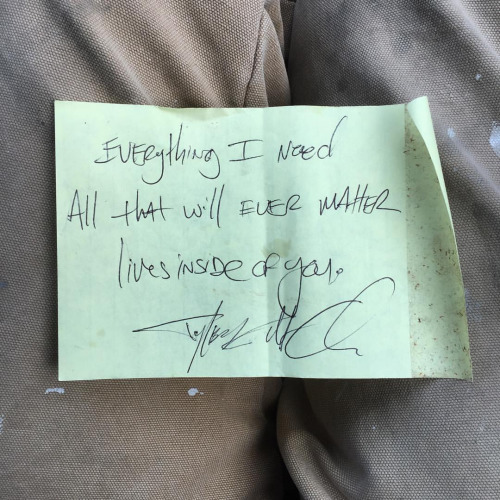 EVERYthing I NEED
All that will EVER MATTER
lives inside of you.